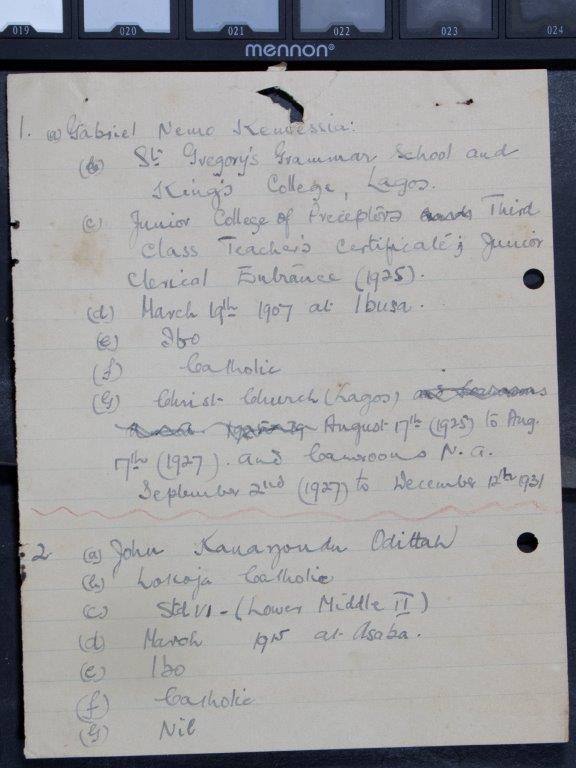 019 020 021 022 023 024
mennon®
1. (a) Gabriel Nemo
(b) St. Gregory's Grammar School and
King's College, Lagos.
(c) Junior College of Preceptors Third
Class Teacher's Certificate; Junior
Clerical Entrance (1925).
(d) March 19th 1907 at Ibusa.
(e) Ibo
(f) Catholic
(g) Christ Church (Lagos)
August 17th (1925) to Aug.
17th (1927). and Cameroons N.A.
September 2nd (1927) to December 12th 1931
2 (a) John Odittah
(b) Lokoja Catholic
(c) Std VI - (Lower Middle II)
(d) March 1915 at Asaba.
(e) Ibo
(f) Catholic
(g) Nil